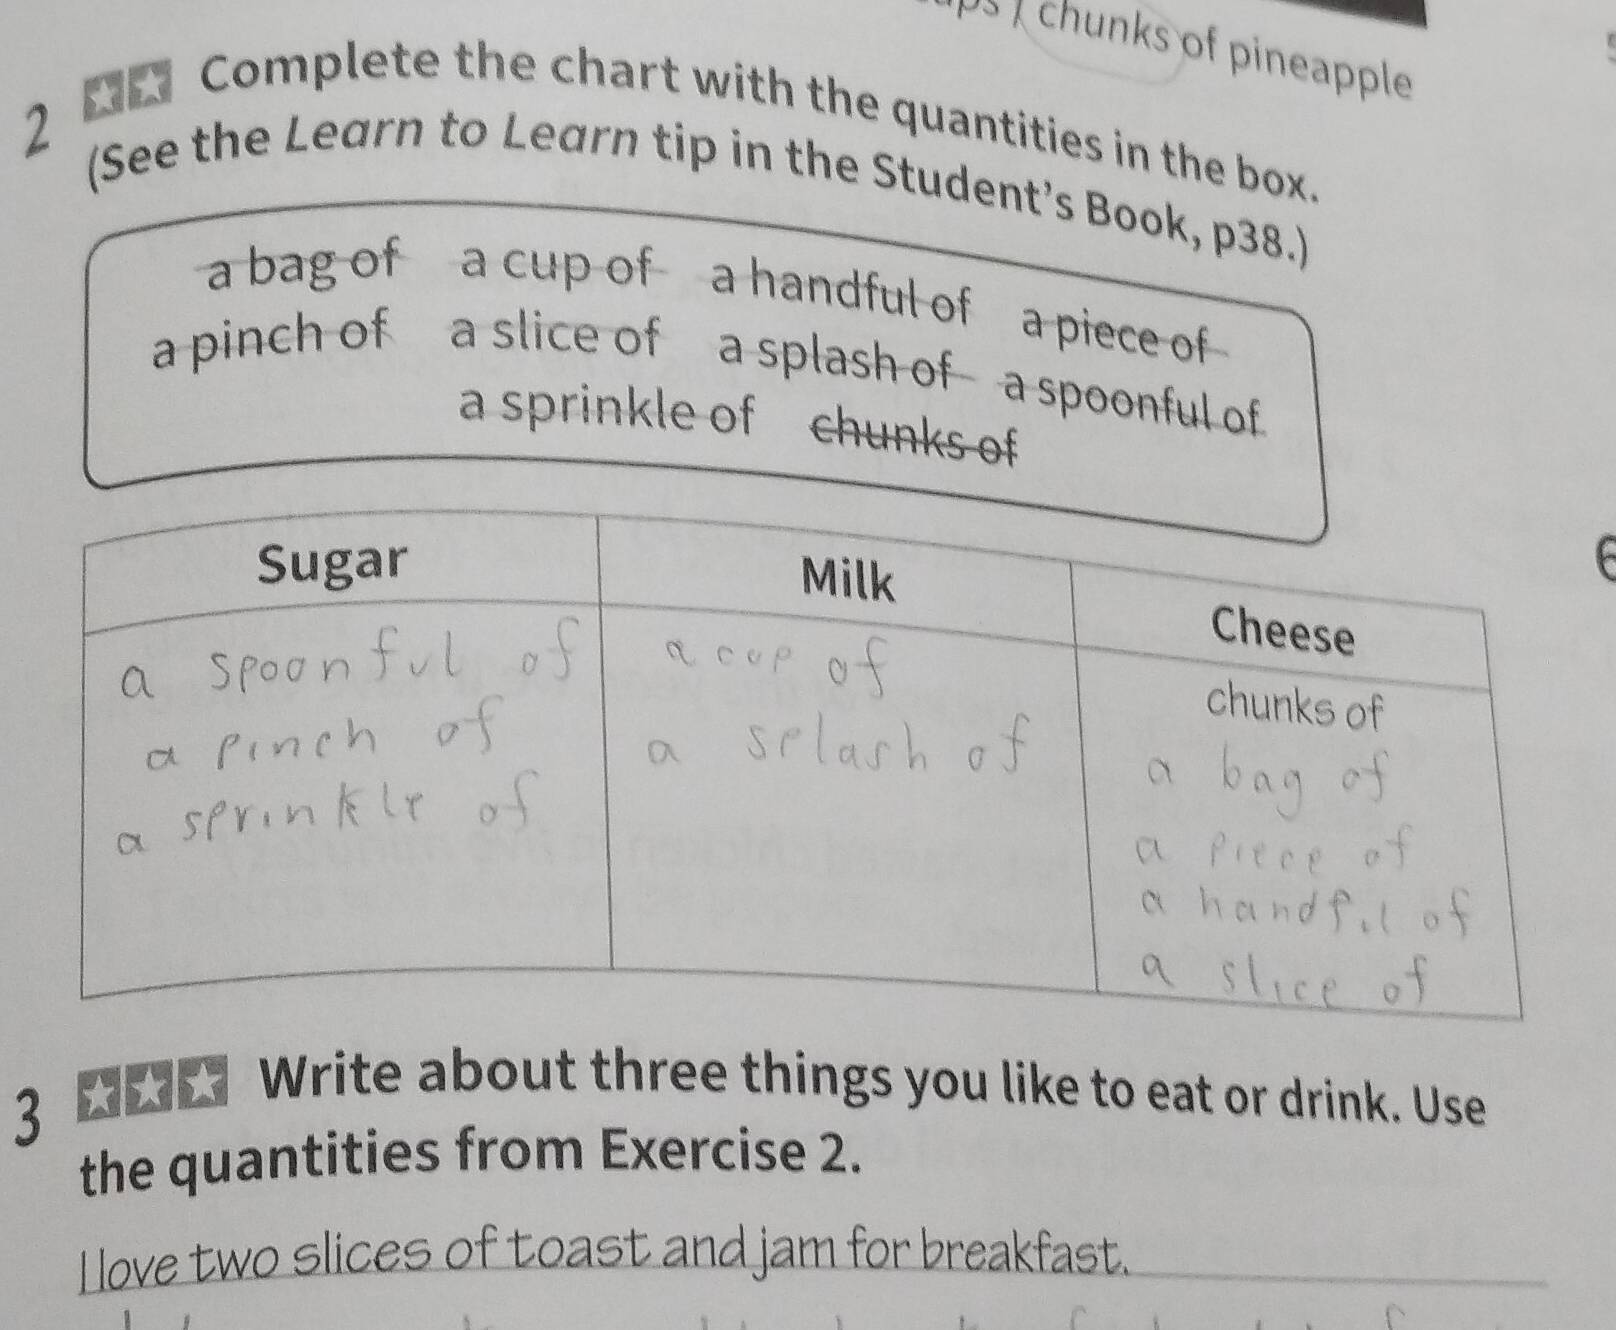 chunks of pineapple
2 Complete the chart with the quantities in the box.
(See the Learn to Learn tip in the Student's Book, p38.)
a bag of a cup of a handful of a piece of
a pinch of a slice of a splash of a spoonful of
a sprinkle of chunks of
Sugar Milk Cheese
a spoonful of a cup of chunks of
a pinch of a splash of a bag of
a sprinkle of a piece of
a handful of
a slice of
3 Write about three things you like to eat or drink. Use
the quantities from Exercise 2.
I love two slices of toast and jam for breakfast.
6